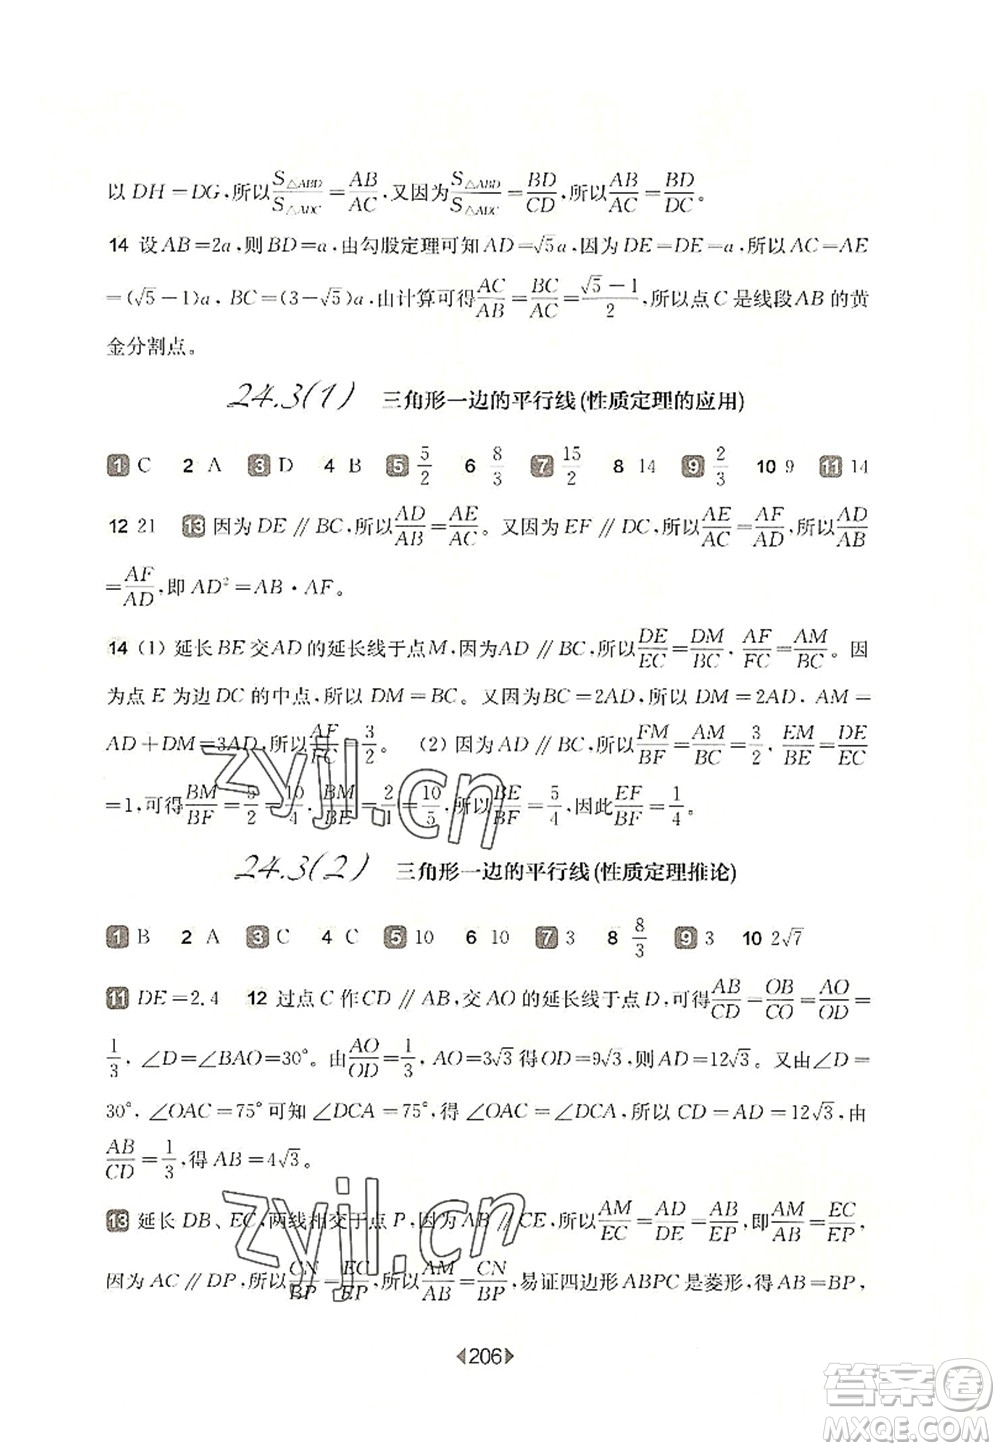 以 DH＝DG,所以 S△ABD/S△ADC＝AB/AC,又因为 S△ABD/S△ADC＝BD/CD,所以 AB/AC＝BD/DC。
14 设 AB＝2a,则 BD＝a,由勾股定理可知 AD＝√5a,因为 DE＝DE＝a,所以 AC＝AE
＝(√5－1)a, BC＝(3－√5)a,由计算可得 AC/AB＝BC/AC＝(√5－1)/2,所以点 C 是线段 AB 的黄
金分割点。
24.3(1) 三角形一边的平行线(性质定理的应用)
1 C 2 A 3 D 4 B 5 5/2 6 8/3 7 15/2 8 14 9 2/3 10 9 11 14
12 21 13 因为 DE∥BC,所以 AD/AB＝AE/AC。又因为 EF∥DC,所以 AE/AC＝AF/AD,所以 AD/AB
＝AF/AD,即 AD²＝AB·AF。
14 (1) 延长 BE 交 AD 的延长线于点 M,因为 AD∥BC,所以 DE/EC＝DM/BC, AF/FC＝AM/BC。因
为点 E 为边 DC 的中点,所以 DM＝BC。又因为 BC＝2AD,所以 DM＝2AD, AM＝
AD＋DM＝3AD,所以 AF/FC＝3/2。 (2) 因为 AD∥BC,所以 FM/BF＝AM/BC＝3/2, EM/BE＝DE/EC
＝1,可得 BM/BF＝5/2＝10/4, BM/BE＝2/1＝10/5,所以 BE/BF＝5/4,因此 EF/BF＝1/4。
24.3(2) 三角形一边的平行线(性质定理推论)
1 B 2 A 3 C 4 C 5 10 6 10 7 3 8 8/3 9 3 10 2√7
11 DE＝2.4 12 过点 C 作 CD∥AB,交 AO 的延长线于点 D,可得 AB/CD＝OB/CO＝AO/OD＝
1/3, ∠D＝∠BAO＝30°。由 AO/OD＝1/3, AO＝3√3 得 OD＝9√3,则 AD＝12√3。又由∠D＝
30°, ∠OAC＝75°可知∠DCA＝75°,得∠OAC＝∠DCA,所以 CD＝AD＝12√3,由
AB/CD＝1/3,得 AB＝4√3。
13 延长 DB、EC,两线相交于点 P,因为 AB∥CE,所以 AM/EC＝AD/DE＝AB/EP,即 AM/AB＝EC/EP,
因为 AC∥DP,所以 CN/BP＝EC/EP,所以 AM/AB＝CN/BP,易证四边形 ABPC 是菱形,得 AB＝BP,
206
zyjl.cn
zyjl.cn
答案卷
MXQE.COM